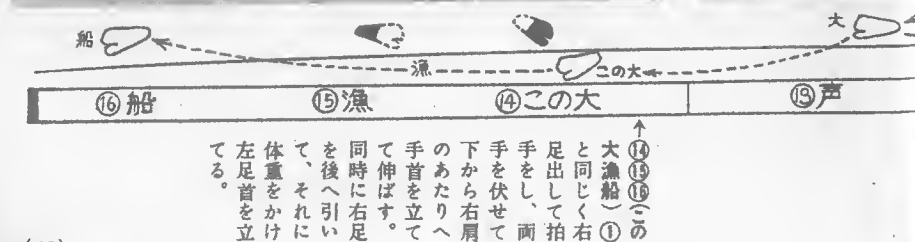 大
船
漁
この大
⑯船
⑮漁
⑭この大
⑬声
⑭⑮⑯(この
大漁船)①
と同じく右
足出して拍
手をし、両
手を伏せて
下から右肩
のあたりへ
手首を立て
て伸ばす。
同時に右足
を後へ引い
て、それに
体重をかけ
左足首を立
てる。